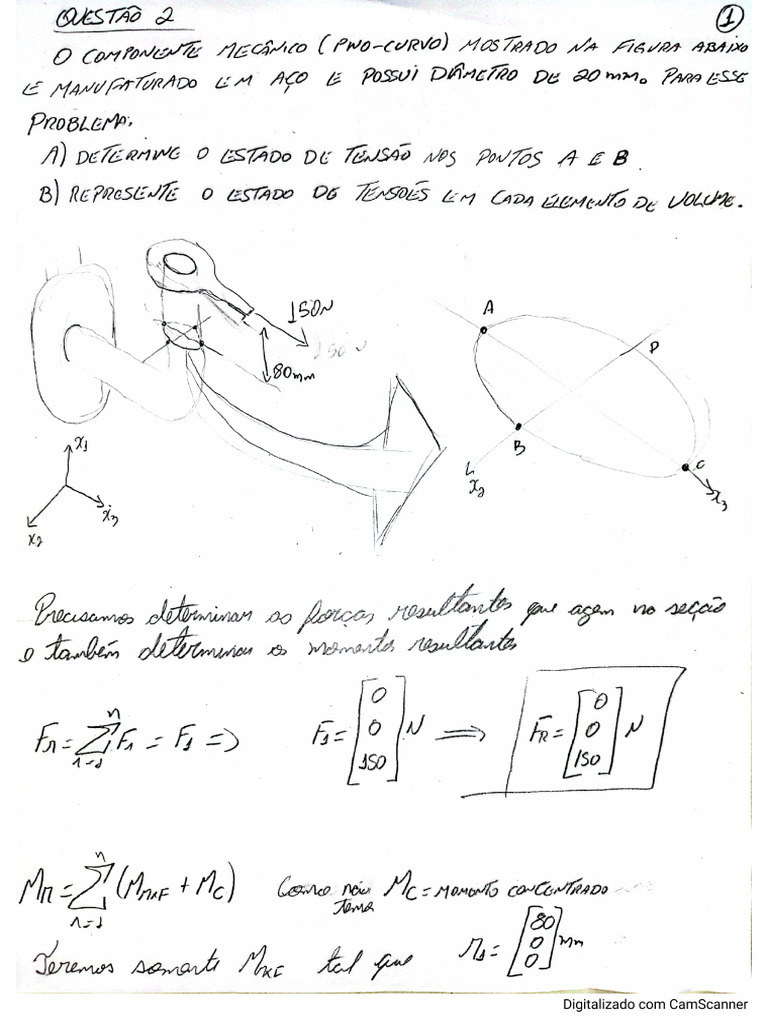 QUESTÃO 2
1
O COMPONENTE MECÂNICO (PINO-CURVO) MOSTRADO NA FIGURA ABAIXO
E MANUFATURADO EM AÇO E POSSUI DIÂMETRO DE 20 mm. PARA ESSE
PROBLEMA.
A) DETERMINE O ESTADO DE TENSÃO NOS PONTOS A E B.
B) REPRESENTE O ESTADO DE TENSÕES EM CADA ELEMENTO DE VOLUME.
150N
150N
80mm
x1
x2
x3
A
D
B
x2
C
x3
Precisamos determinar as forças resultantes que agem na seção
e também determinar os momentos resultantes
FR = Σ F1 = F1 => F1 = [0 0 150] N => FR = [0 0 150] N
MR = Σ (MRXF + MC) Como não tema MC = MOMENTO CONCENTRADO
Teremos somente MRXF tal que r1 = [80 0 0] mm
Digitalizado com CamScanner